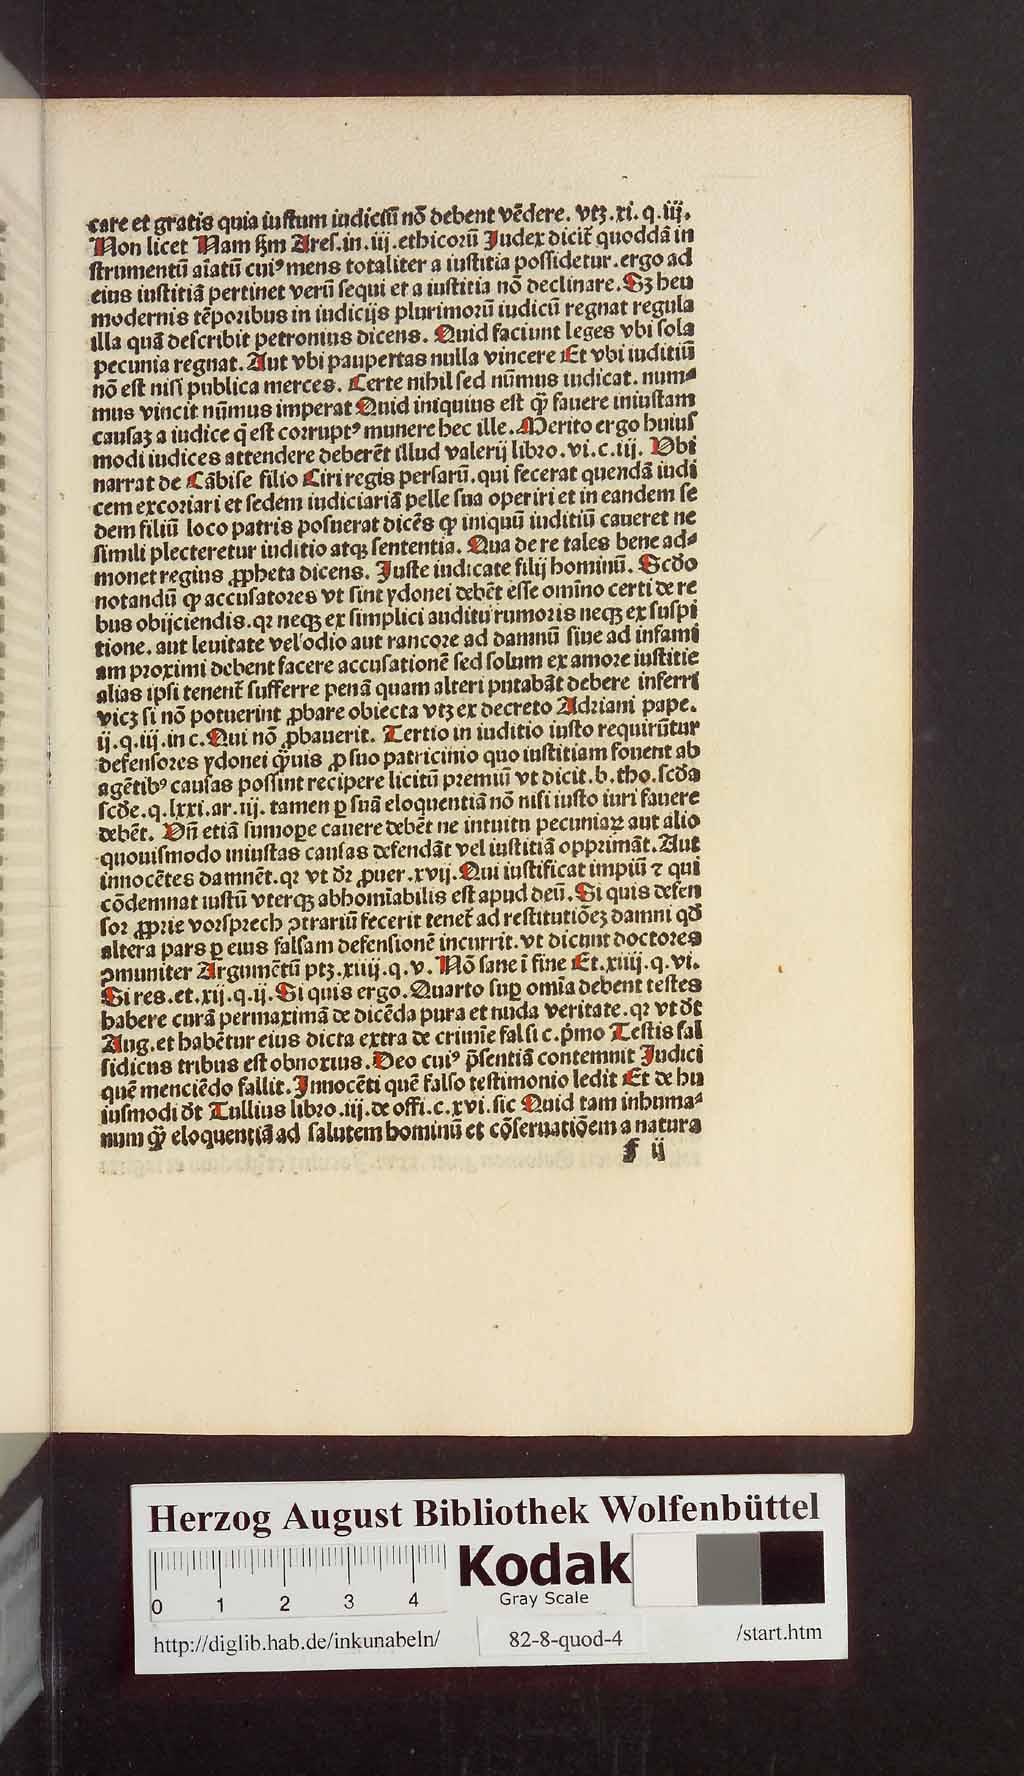 care et gratis quia iustum iudiciū nō debent vēdere. vtꝫ .xi. q. iij.
Non licet Nam ẜm Ares. in. iij .ethicorū Judex dicit̄ quoddā in
strumentū aīatū cuiꝰ mens totaliter a iustitia possidetur .ergo ad
eius iustitiā pertinet verū sequi et a iustitia nō declinare. Sꝫ heu
modernis tēporibus in iudicijs plurimorū iudicū regnat regula
illa quā describit petronius dicens. Quid faciunt leges vbi sola
pecunia regnat. Aut vbi paupertas nulla vincere Et vbi iuditiū
nō est nisi publica merces. Certe nihil sed nūmus iudicat. num⸗
mus vincit nūmus imperat Quid iniquius est ꝙ̄ fauere iniustam
causaꝫ a iudice q̄ est corruptꝰ munere hec ille. Merito ergo huius
modi iudices attendere deberēt illud valerij libro. vi. c. iij. Vbi
narrat de Cābise filio Ciri regis persarū. qui fecerat quendā iudi
cem excoriari et sedem iudiciariā pelle sua operiri et in eandem se
dem filiū loco patris posuerat dicēs ꝙ iniquū iuditiū caueret ne
simili plecteretur iuditio atqꝫ sententia. Qua de re tales bene ad⸗
monet regius ꝓpheta dicens. Juste iudicate filij hominū. Scd̄o
notandū ꝙ accusatores vt sint ydonei debēt esse omīno certi de re
bus obijciendis. qꝛ neqꝫ ex simplici auditu rumoris neqꝫ ex suspi
tione. aut leuitate vel odio aut rancore ad damnū siue ad infami
am proximi debent facere accusationē sed solum ex amore iustitie
alias ipsi tenent̄ sufferre penā quam alteri putabāt debere inferri
vicꝫ si nō potuerint ꝓbare obiecta vtꝫ ex decreto Adriani pape.
ij. q. iij .in c. Qui nō ꝓbauerit. Tertio in iuditio iusto requirūtur
defensores ydonei ꝙ̄uis ꝓ suo patricinio quo iustitiam fouent ab
agētibꝰ causas possint recipere licitū premiū vt dicit .b. tho. scd̄a
scd̄e. q. lxxi. ar. iij. tamen ꝑ suā eloquentiā nō nisi iusto iuri fauere
debēt. Vn̄ etiā sumoꝑe cauere debēt ne intuitu pecuniaꝝ aut alio
quouismodo iniustas causas defendāt vel iustitiā opprimāt. Aut
innocētes damnēt. qꝛ vt dꝛ̄ ꝓuer. xvij. Qui iustificat impiū ⁊ qui
cōdemnat iustū vterqꝫ abhomīabilis est apud deū. Si quis defen
sor ꝓprie vorsprech ꝯtrariū fecerit tenet̄ ad restitutiōeꝫ damni qd̄
altera pars ꝑ eius falsam defensionē incurrit. vt dicunt doctores
ꝯmuniter Argumētū ptꝫ. xiiij. q. v. Nō sane ī fine Et. xiiij. q. vi.
Si res. et. xij. q. ij. Si quis ergo. Quarto suꝑ omīa debent testes
habere curā permaximā de dicēda pura et nuda veritate. qꝛ vt dt̄
Aug. et habētur eius dicta extra de crimīe falsi c. p̄mo Testis fal
sidicus tribus est obnoxius. Deo cuiꝰ p̄sentiā contemnit Judici
quē menciēdo fallit. Innocēti quē falso testimonio ledit Et de hu
iusmodi dt̄ Tullius libro. iij. de offi. c. xvi. sic Quid tam inhuma⸗
num ꝙ̄ eloquentiā ad salutem hominū et cōseruatiōem a natura
f ij
Herzog August Bibliothek Wolfenbüttel
0 1 2 3 4
Kodak
Gray Scale
http://diglib.hab.de/inkunabeln/ 82-8-quod-4 /start.htm